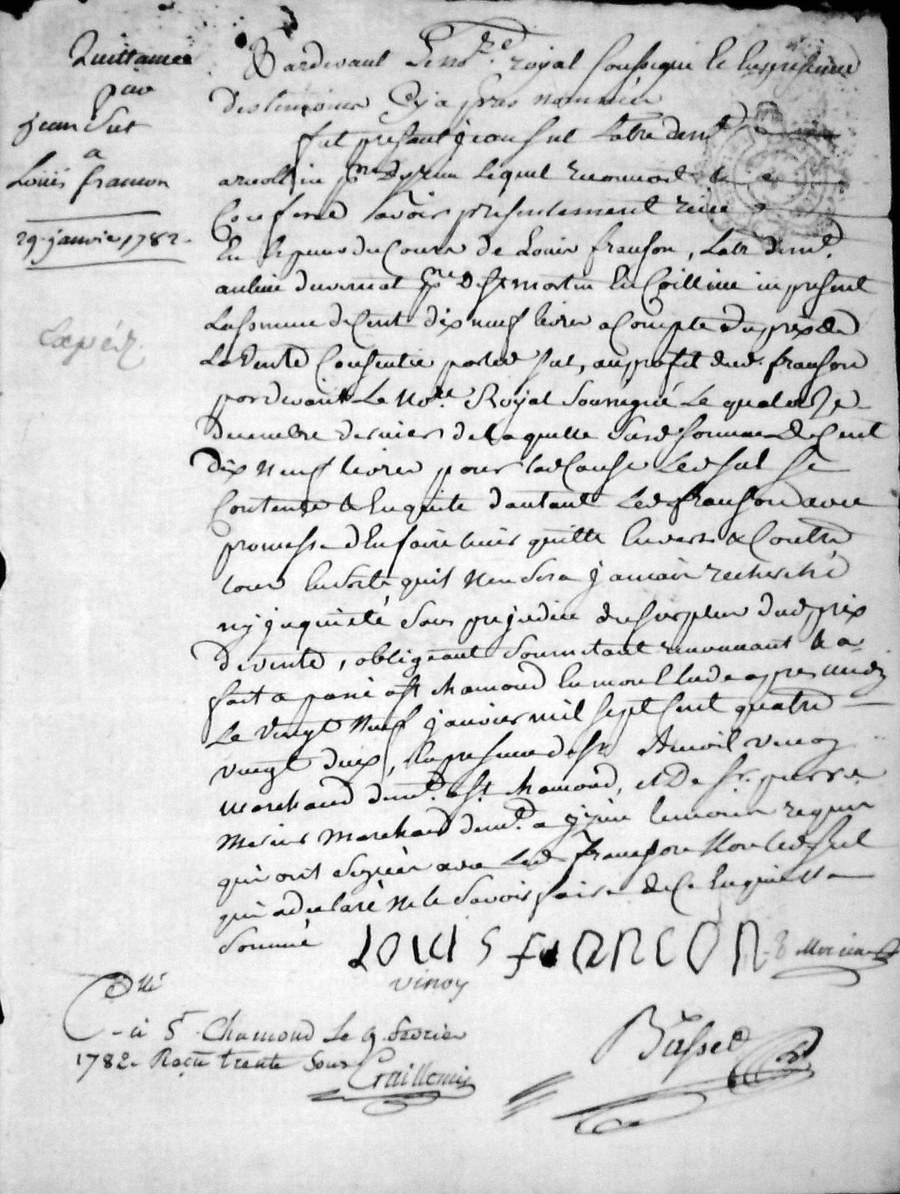 Quittance
par
jean Sut
a
Louis françon
29 janvie, 1782.
Expéd
Pardevant Le no.re royal Soussigné Et En presence
Des temoins Cy apres nommés
fut present jean Sut Lab.r dem.t
lequel reconnoit &
Confesse avoir presentement reçue
En Especes du Cours de Louis franson, Lab.r dem.t
au lieu du vernat p.sse De St martin En Coillieu icy present
La somme de Cent dix neuf livres a Compte du prix de
La vente Consentie par led Sut, au profit dud. franson
pardevant Le No.re Royal Soussigné Le quatorze
decembre dernier de laquelle Susd somme de Cent
dix neuf livres pour lad Cause Led Sut Se
Contente & En quitte d'autant Led franson avec
promesse d'En faire tenir quitte Envers & Contre
tous En sorte qu'il n'En Sera jamais recherché
ny inquieté Sans prejudice du Surplus dud prix
de vente, obligeant Soumetant renonçant &.a
fait & passé a St chamond En mon Etude apres midy
Le vingt Neuf janvier mil sept Cent quatre
vingt deux, En presence de Sr Benoit vinoy
marchand dem.t a St chamond, et De Sr pierre
Mercier Marchand dem.t a temoins requis
qui ont Signés avec Led franson Non led Sut
qui a declaré ne le Savoir faire de Ce Enquis &
Sommé
Louis françon
Mercier
vinoy
C.llé
à St Chamond Le 9 fevrier
1782. Reçu trente Sous